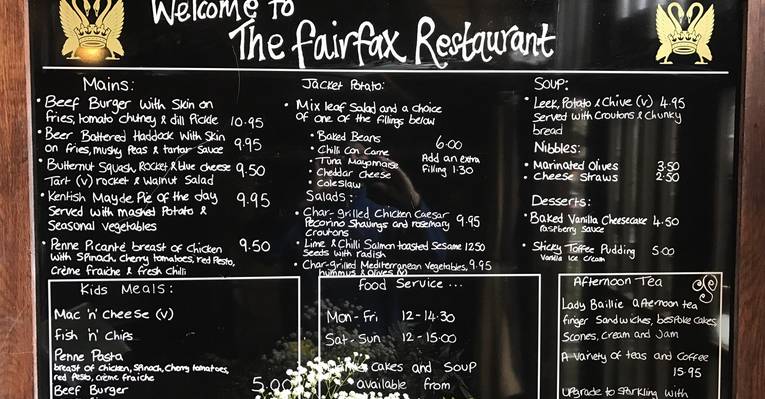 Welcome to
The Fairfax Restaurant
Mains:
• Beef Burger with Skin on
fries, tomato chutney & dill Pickle 10.95
• Beer Battered Haddock with Skin
on fries, mushy Peas & tartar Sauce 9.95
• Butternut Squash, Rocket & blue cheese 9.50
Tart (v) rocket & Walnut Salad
• Kentish Mayde Pie of the day 9.95
Served with mashed Potato &
Seasonal vegetables
• Penne Picanté breast of chicken 9.50
with Spinach, cherry tomatoes, red Pesto,
crème fraiche & fresh chilli
Jacket Potato:
• Mix leaf Salad and a choice
of one of the fillings below
• Baked Beans 6.00
• Chilli Con Carne
• Tuna Mayonaise
• Cheddar cheese
• Coleslaw
Add an extra
filling 1.30
Salads:
• Char-grilled Chicken Caesar 9.95
Pecorino Shavings and rosemary
Croutons
• Lime & Chilli Salmon toasted Sesame 12.50
Seeds with radish
• Char-grilled Mediterranean Vegetables, 9.95
hummus & Olives (v)
SOUP:
• Leek, Potato & Chive (v) 4.95
Served with Croutons & Chunky
bread
Nibbles:
• Marinated Olives 3.50
• Cheese Straws 2.50
Desserts:
• Baked Vanilla Cheesecake 4.50
raspberry Sauce
• Sticky Toffee Pudding 5.00
Vanilla Ice Cream
Kids Meals:
Mac 'n' cheese (v)
Fish 'n' Chips
Penne Pasta
breast of chicken, Spinach, Cherry tomatoes,
red Pesto, crème fraiche
Beef Burger 5.00
Food Service...
Mon - Fri 12 - 14.30
Sat - Sun 12 - 15.00
cakes and soup
available from
Afternoon Tea
Lady Baillie afternoon tea
finger Sandwiches, bespoke cakes,
Scones, Cream and Jam
A Variety of teas and coffee
15.95
Upgrade to Sparkling with